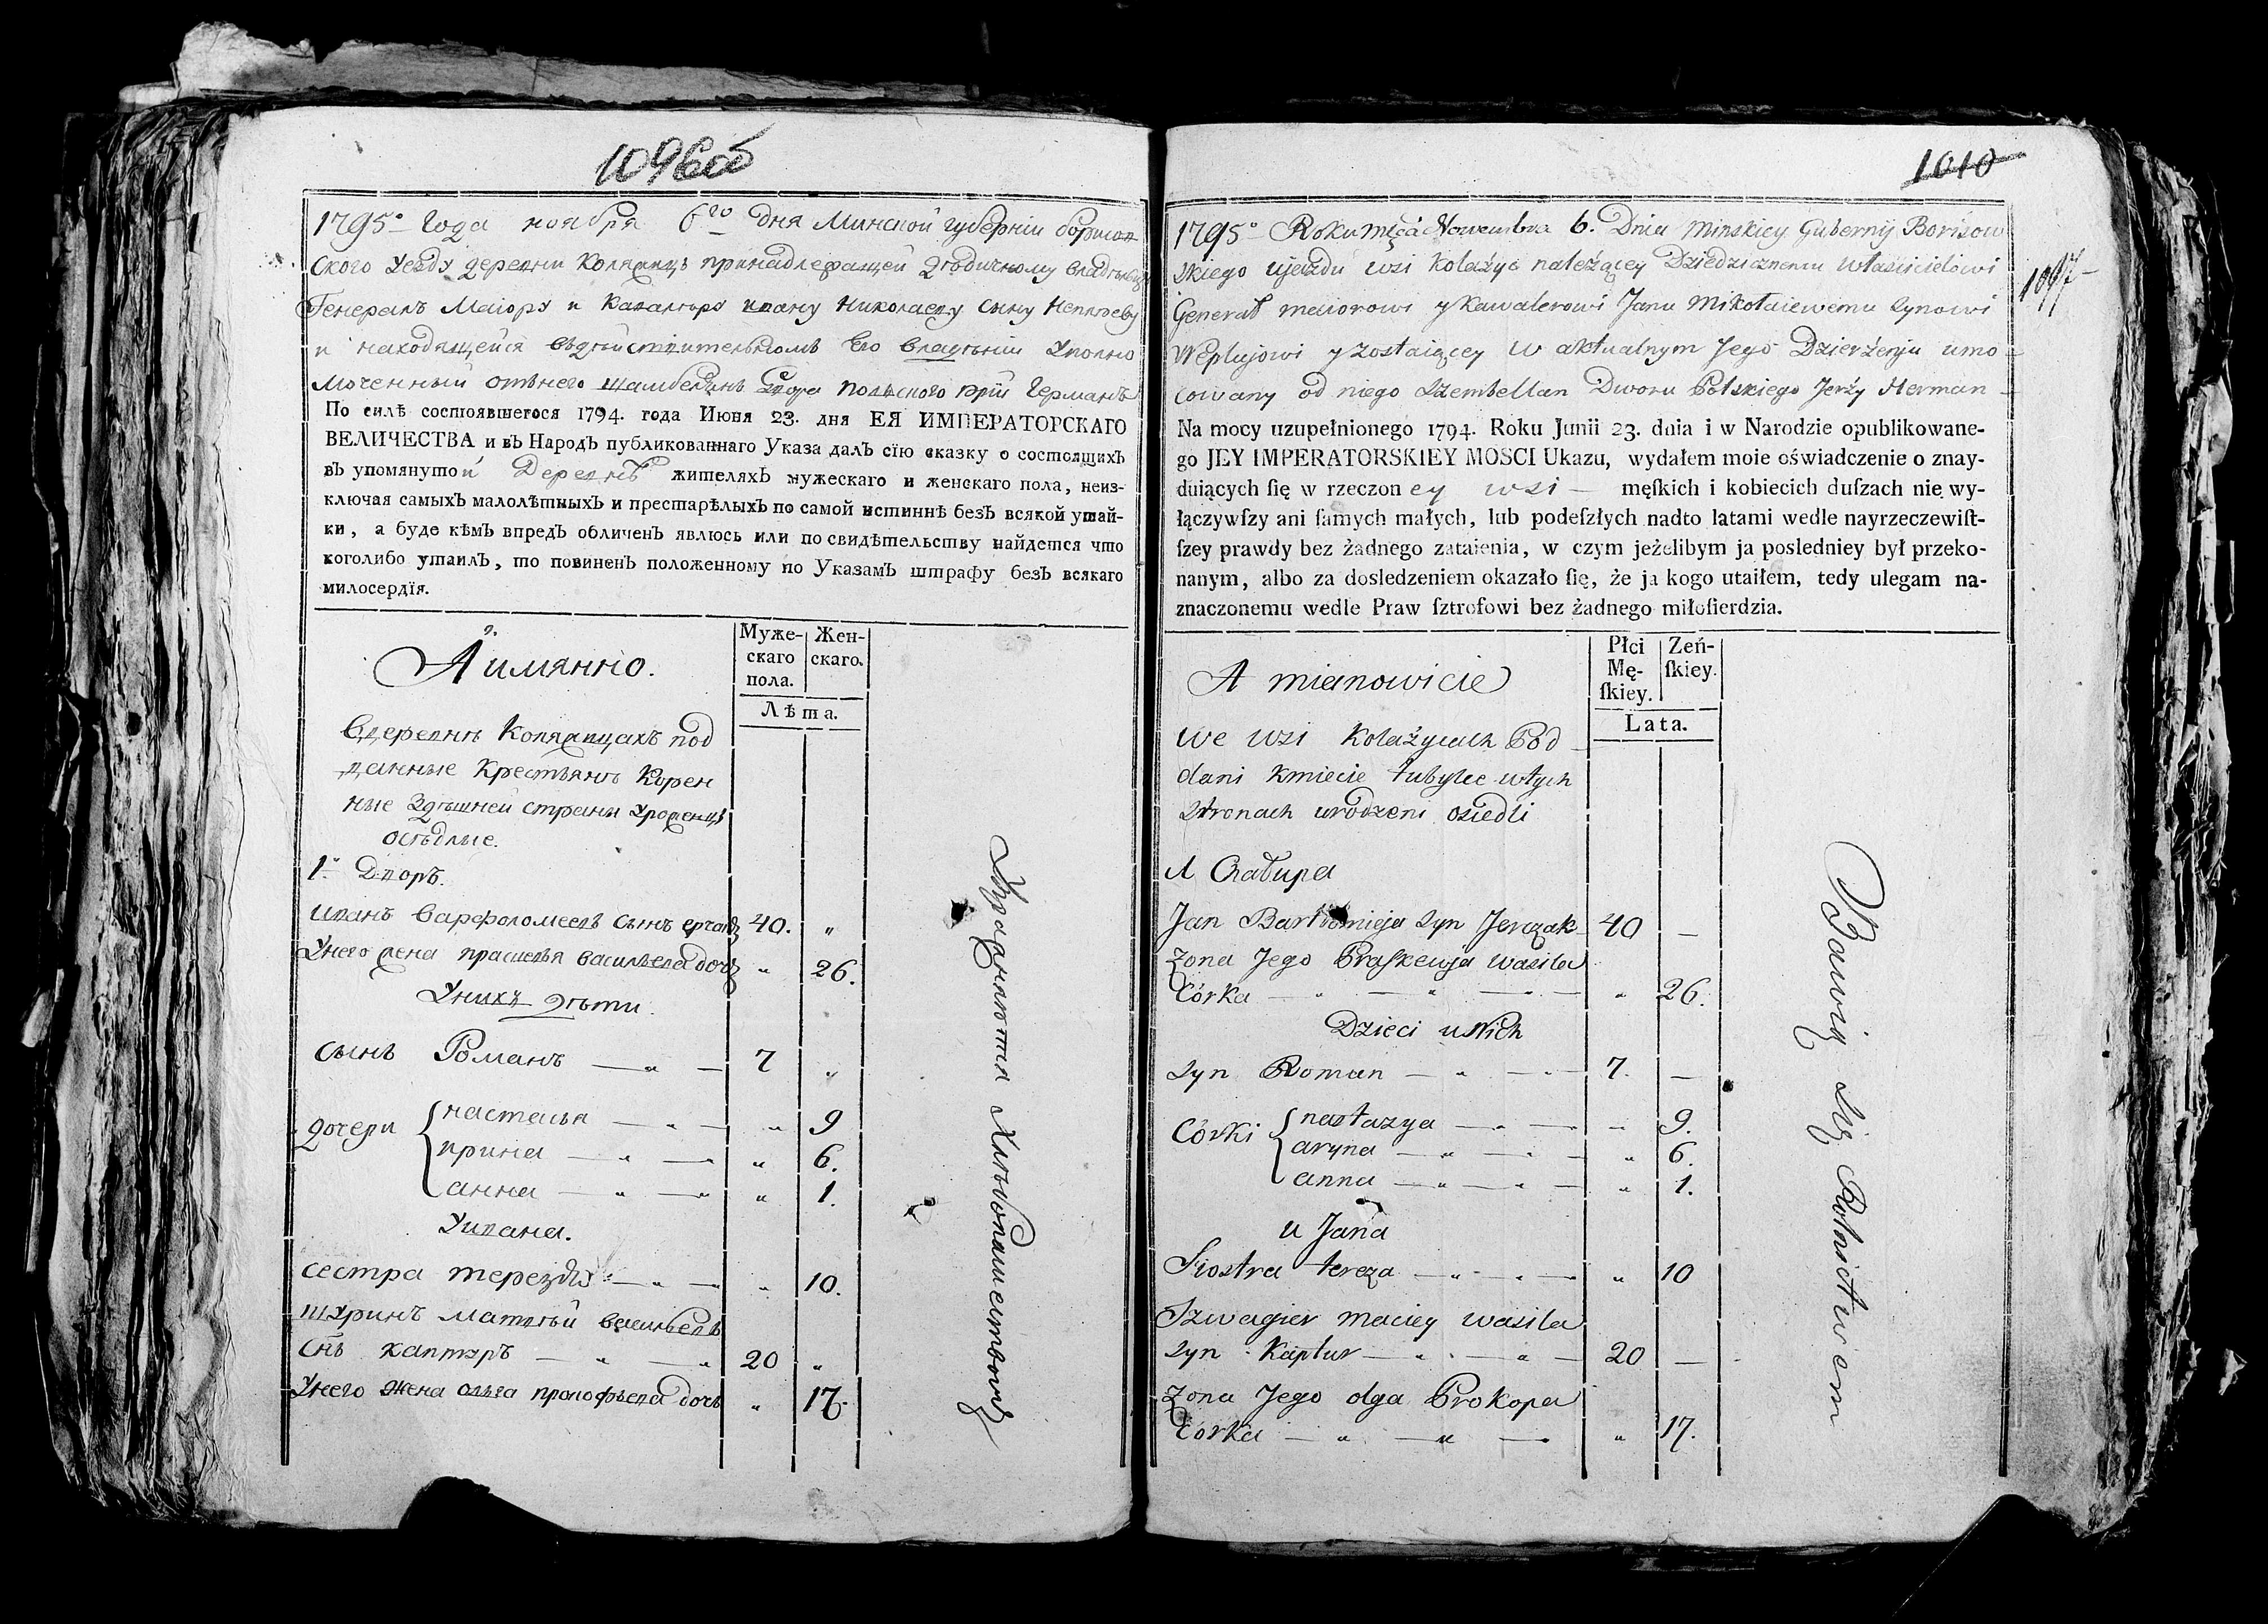 1096об
1795º Года ноября 6го дня Минской губерніи борисов
ского уезду деревниКоляжицъ принадлежащей Эдѣдичному владѣльцу
Генералъ Маіору и Кавалеру ивану Николаеву сыну Неплюеву
и находящейся вѣдѣйствительномъ Его владѣніи Уполно
моченный отънего шамбелянъ Двора польского юрій Германъ
По силѣ состоявшегося 1794. года Июня 23. дня ЕЯ ИМПЕРАТОРСКАГО
ВЕЛИЧЕСТВА и въ Народъ публикованнаго Указа далъ сїю сказку о состоящихъ
въ упомянутой Деревнѣ жителяхъ мужескаго и женскаго пола, неиз-
ключая самыхъ малолѣтныхъ и престарѣлыхъ по самой истиннѣ безъ всякой утай-
ки, а буде кѣмъ впредь обличенъ явлюсь или по свидѣтельству найдется что
коголибо утаилъ, то повиненъ положенному по Указамъ штрафу безъ всякаго
милосердїя.
А имянно.
Муже-
скаго
пола.
Жен-
скаго.
Лѣта.
Вдеревнѣ Коляжицахъ под
данные Крестьянѣ Корен
ные Здѣшней страны Уроженцѣ
осѣдлые.
1й Дворъ.
иванъ варфоломеевъ сынъ ерчакъ 40. „
Унего жена прасковья васильева дочь „ 26.
Унихъ дѣти.
сынъ Романъ — „ — 7 „
дочери
настасья — „ — „ 9
ирина — „ — „ 6.
анна — „ — „ 1.
Уивана.
сестра терезія — „ — „ 10.
шуринъ матвѣй васильевъ
снъ каптуръ — „ — „ 20 „
Унего жена ольга прокофьева дочь „ 17.
Упражняются Хлѣбопашествомъ
1010
1097
1795º Roku mscà Nowembra 6. Dnia Minskiey Gubernij Borisow
skiego ujezdu wsi Kolażyc należącey Dziedzicznemu właścicielowi
Generał maiorowi y Kawalerowi Janu Mikołaiewemu synowi
Neplujowi y zostaiącey w aktualnym Jego Dzierżenju umo
cowany od niego Szembellan Dworu Polskiego Jerży Herman
Na mocy uzupełnionego 1794. Roku Junii 23. dnia i w Narodzie opublikowane-
go JEY IMPERATORSKIEY MOSCI Ukazu, wydałem moie oświadczenie o znay-
duiących ſię w rzeczoney wsi — męſkich i kobiecich duſzach nie wy-
łączywſzy ani ſamych małych, lub podeſzłych nadto latami wedle nayrzeczewiſt-
ſzey prawdy bez żadnego zataienia, w czym jeżelibym ja posledniey był przeko-
nanym, albo za dosledzeniem okazało ſię, że ja kogo utaiłem, tedy ulegam na-
znaczonemu wedle Praw ſztrofowi bez żadnego miłoſierdzia.
A mianowicie
Płci
Mę-
ſkiey.
Zeń-
ſkiey.
Lata.
We wsi Kolażycach Pod
dani kmiecie tubylce wtych
stronach urodzeni osiedli
1 Chałupa
Jan Bartłomieja syn Jerczak 40 —
Zona Jego Praskewja wasila
Córka — „ — „ — „ 26.
Dzieci u Nich
Syn Roman — „ — 7. —
Córki
nastazya — „ — „ 9.
aryna — „ — „ 6.
anna — „ — „ 1.
u Jana
Siostra tereza — „ — „ 10
Szwagier maciey wasila
syn Kaptur — „ — „ — 20 —
Zona Jego olga Prokopa
Córka — „ — „ — „ 17.
Bawią się Rolnictwem